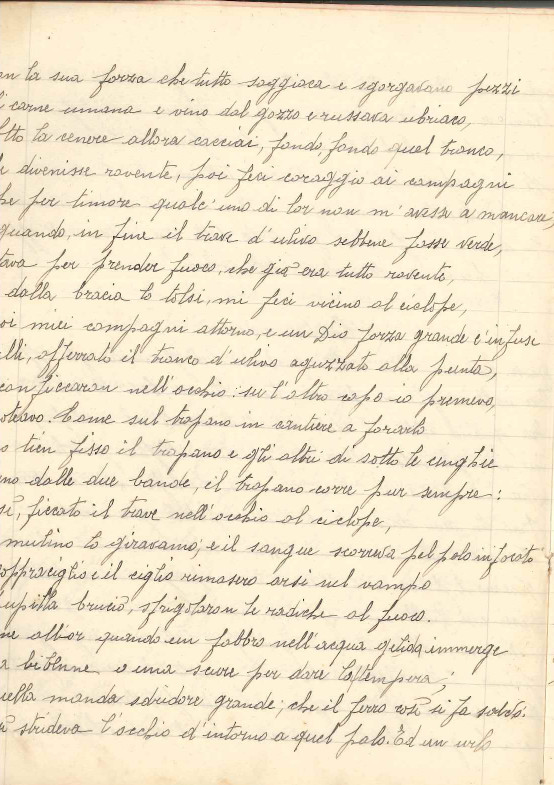 la sua forza che tutto soggioca e sgorgavano pezzi
carne umana e vino dal gozzo e russava ubriaco,
la cenere allora cacciai, fondo, fondo quel tronco,
divenisse rovente, poi feci coraggio ai compagni
per timore qualc'uno di lor non m'avesse a mancare,
quando, in fine il trave d'ulivo sebbene fosse verde,
per prender fuoco, che già era tutto rovente,
dalla bracia lo tolsi, mi feci vicino al ciclope,
miei compagni attorno, e un Dio forza grande c'infuse
afferrato il tronco d'ulivo aguzzato alla punta,
conficcaron nell'occhio: su l'altro capo io premevo,
Come sul trapano in cantiere a forarlo
tien fisso il trapano e gli altri di sotto le cinghie
dalle due bande, e il trapano corre pur sempre:
ficcato il trave nell'occhio al ciclope,
mulino lo giravamo, e il sangue scorreva pel palo infocato
e il ciglio rimasero arsi nel vampo
bruciò, sfrigolaron le radiche al fuoco.
allor quando un fabbro nell'acqua gelida immerge
bipenne o una scure per dare la tempera,
manda stridore grande; che il ferro così si fa saldo:
strideva l'occhio d'intorno a quel palo. Ed un urlo